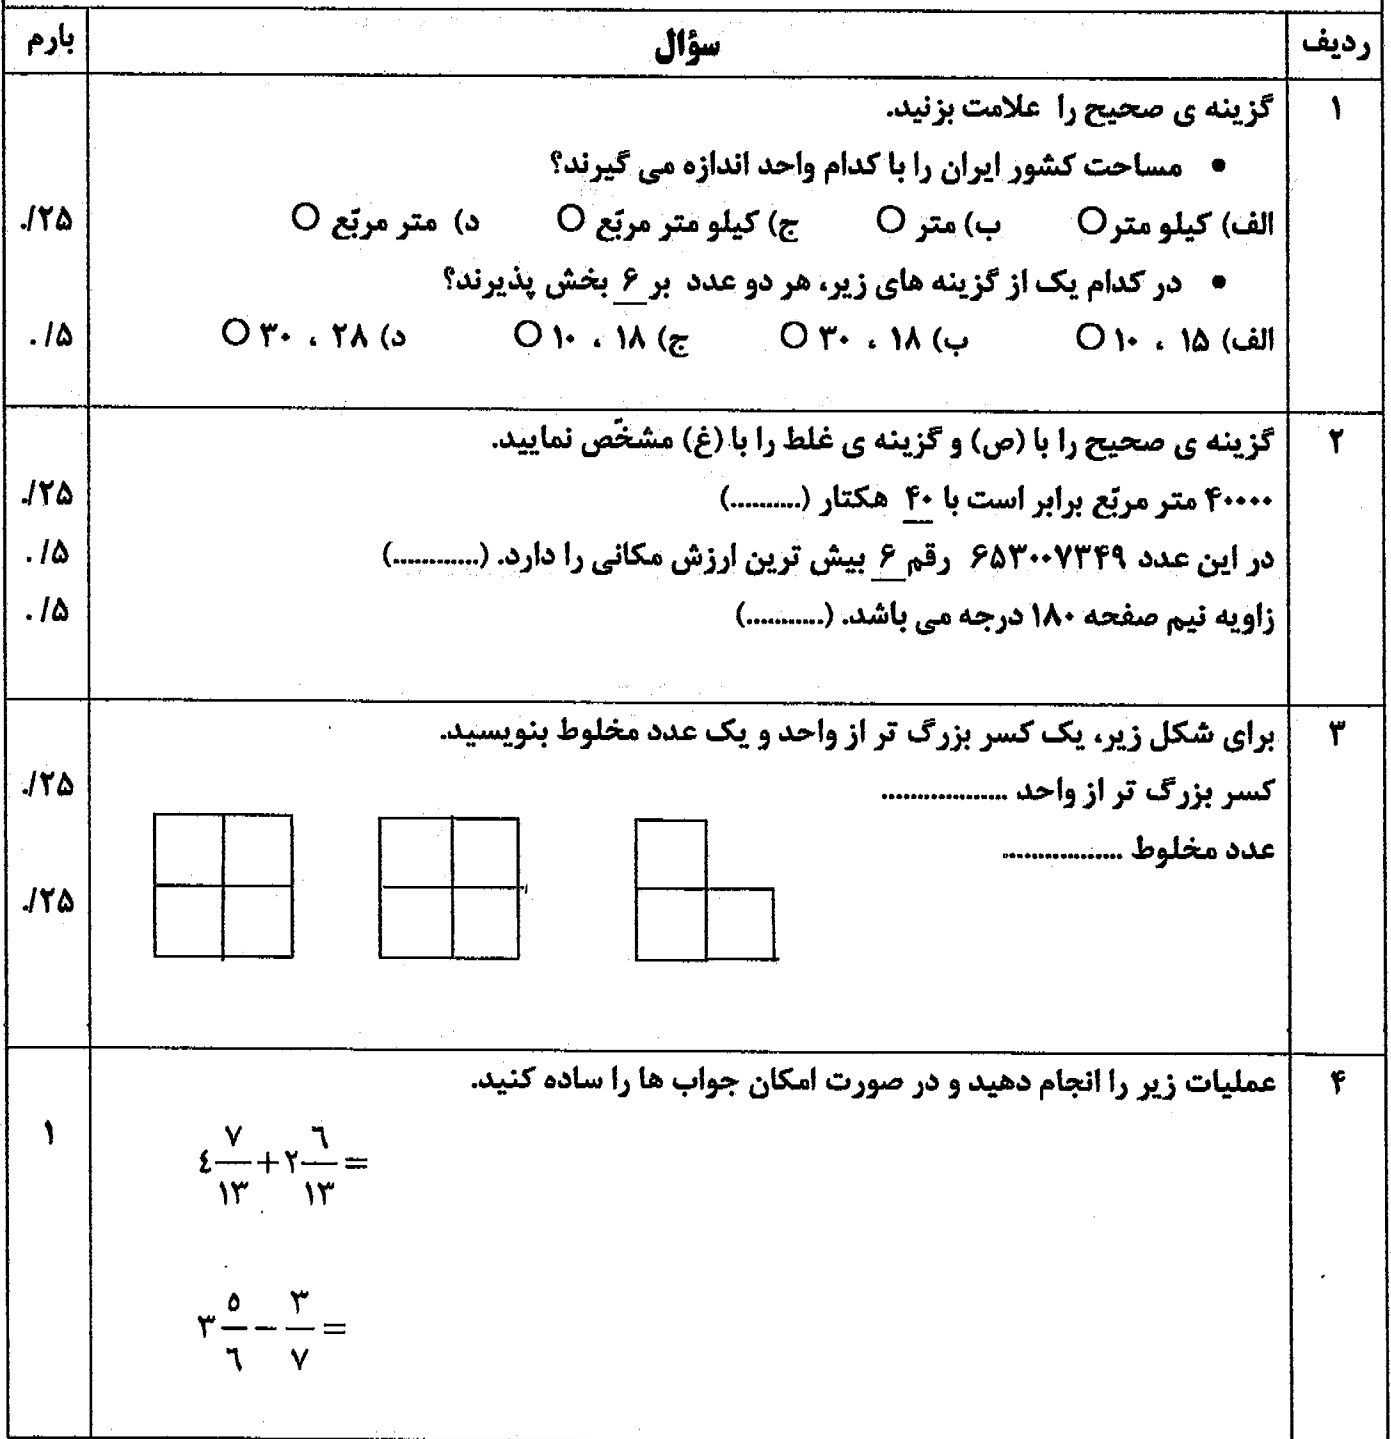 ردیف سؤال بارم
۱ گزینه ی صحیح را علامت بزنید.
• مساحت کشور ایران را با کدام واحد اندازه می گیرند؟
الف) کیلو متر○ ب) متر ○ ج) کیلو متر مربّع ○ د) متر مربّع ○ ۲۵/.
• در کدام یک از گزینه های زیر، هر دو عدد بر ۶ بخش پذیرند؟
الف) ۱۵ ، ۱۰ ○ ب) ۱۸ ، ۳۰ ○ ج) ۱۸ ، ۱۰ ○ د) ۲۸ ، ۳۰ ○ ۵/.
۲ گزینه ی صحیح را با (ص) و گزینه ی غلط را با (غ) مشخّص نمایید.
۴۰۰۰۰ متر مربّع برابر است با ۴۰ هکتار (..........) ۲۵/.
در این عدد ۶۵۳۰۰۷۳۴۹ رقم ۶ بیش ترین ارزش مکانی را دارد. (............) ۵/.
زاویه نیم صفحه ۱۸۰ درجه می باشد. (...........) ۵/.
۳ برای شکل زیر، یک کسر بزرگ تر از واحد و یک عدد مخلوط بنویسید.
کسر بزرگ تر از واحد .................. ۲۵/.
عدد مخلوط .................
۲۵/.
۴ عملیات زیر را انجام دهید و در صورت امکان جواب ها را ساده کنید.
۱
٤ ٧/١٣ + ٢ ٦/١٣ =
٣ ٥/٦ − ٣/٧ =